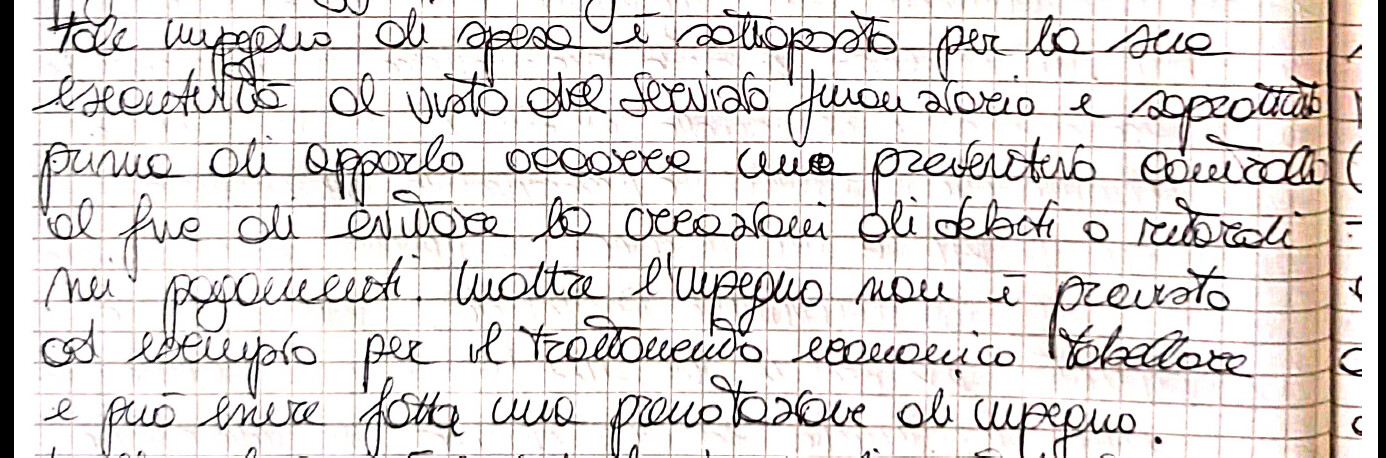 tale impegno di spesa è sottoposto per la sua
esecutività al visto del servizio finanziario e soprattutto
prima di appalto occorre una preventivo controllo
al fine di evitare la creazioni di debiti o ritardi
nei pagamenti. Inoltre l'impegno non è previsto
ad esempio per il trattamento economico tabellare
e può essere fatta una prenotazione di impegno.